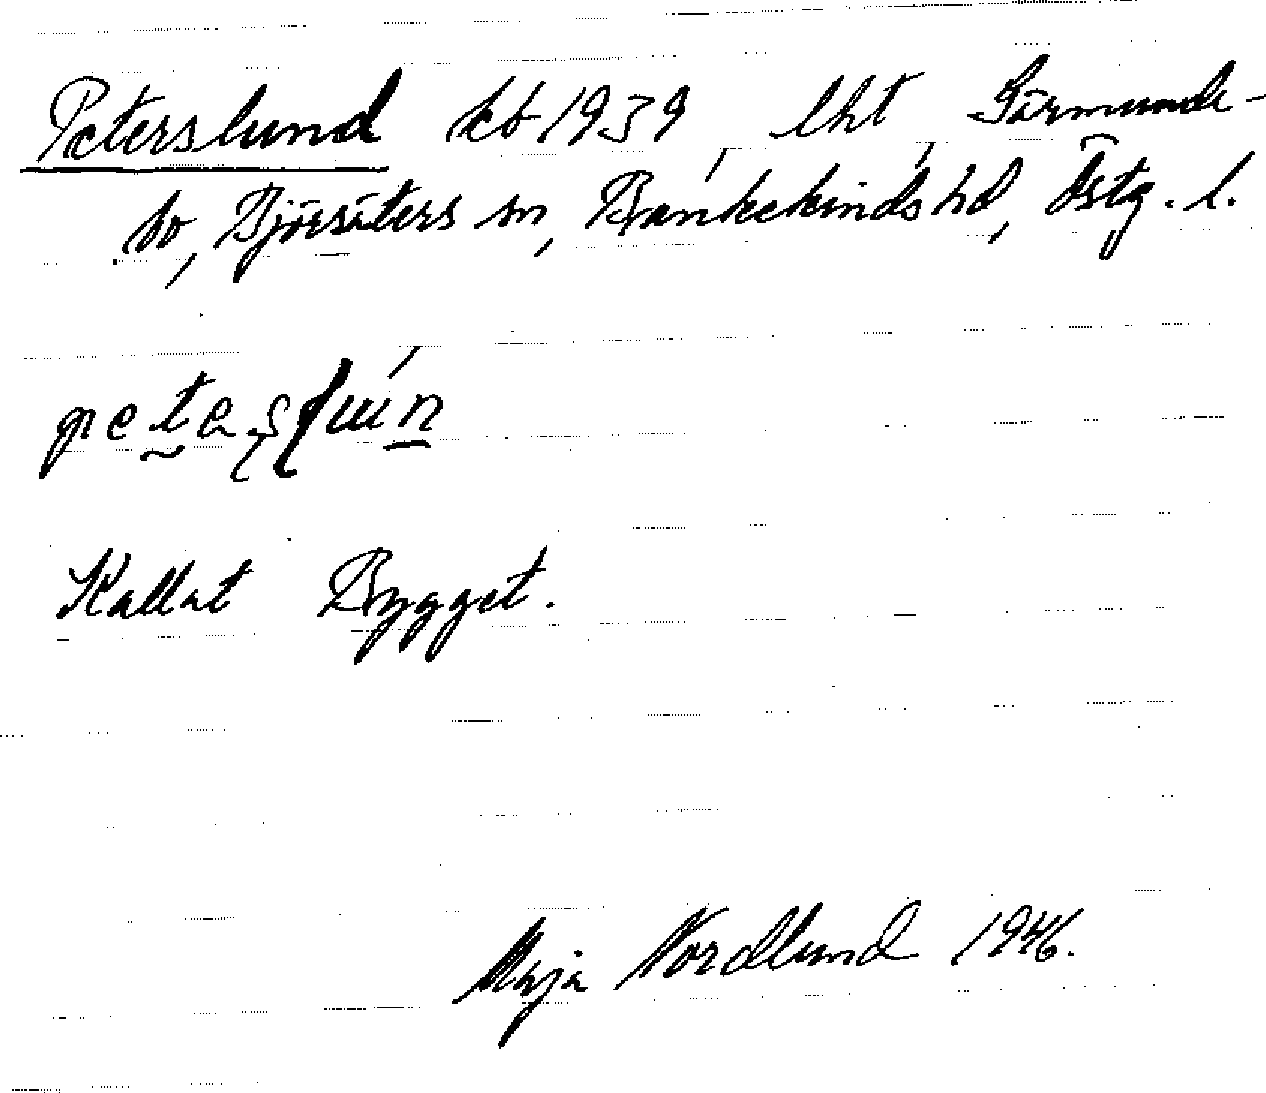 Peterslund kb 1939, lht, Särmunde-
bo, Björsäters sn, Bankekinds hd, Östg. l.
Kallat Bygget.
Maja Nordlund 1946.